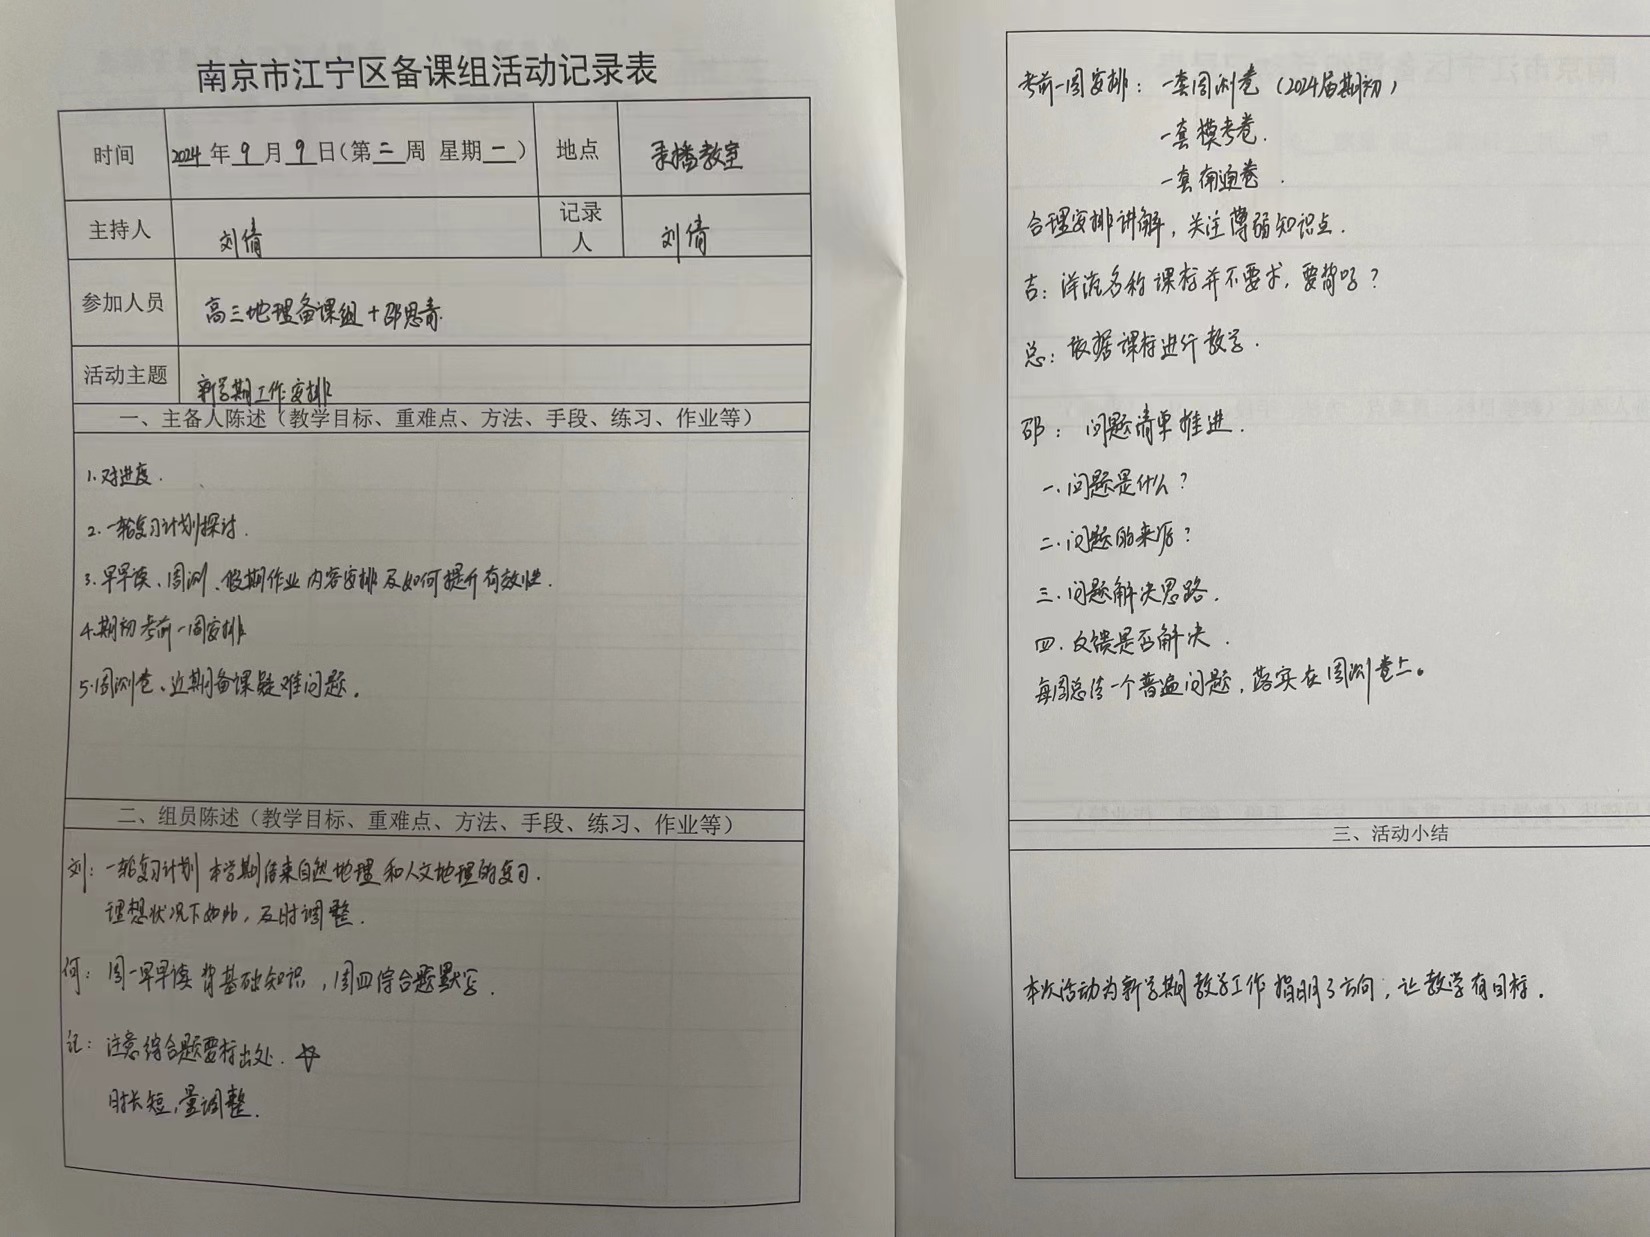 南京市江宁区备课组活动记录表
时间 2024年9月9日(第二周 星期一) 地点 录播教室
主持人 刘倩 记录人 刘倩
参加人员 高三地理备课组+邵思青
活动主题 新学期工作安排
一、主备人陈述(教学目标、重难点、方法、手段、练习、作业等)
1.对进度.
2.一轮复习计划探讨.
3.早早读、周测、假期作业内容安排及如何提升有效性.
4.期初考前一周安排
5.周测卷、近期备课疑难问题。
二、组员陈述(教学目标、重难点、方法、手段、练习、作业等)
刘: 一轮复习计划 本学期结束自然地理和人文地理的复习.
理想状况下如此,及时调整.
何: 周一早早读背基础知识,周四综合题默写.
记: 注意综合题要标出处.
时长短,量调整.
考前一周安排: 一套周测卷(2024届期初)
一套模考卷.
一套南通卷.
合理安排讲解,关注薄弱知识点.
吉: 洋流名称课标并不要求,要背吗?
总: 依据课标进行教学.
邵: 问题清单推进.
一.问题是什么?
二.问题的来源?
三.问题解决思路.
四.反馈是否解决.
每周总结一个普遍问题,落实在周测卷上。
三、活动小结
本次活动为新学期教学工作指明了方向,让教学有目标.